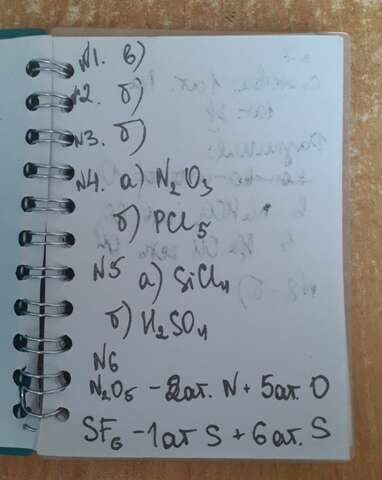 N1. в)
N2. б)
N3. б)
N4. а) N₂O₃
б) PCl₅
N5 а) SiCl₄
б) H₂SO₄
N6
N₂O₅ - 2ат. N + 5ат. O
SF₆ - 1ат S + 6ат. S